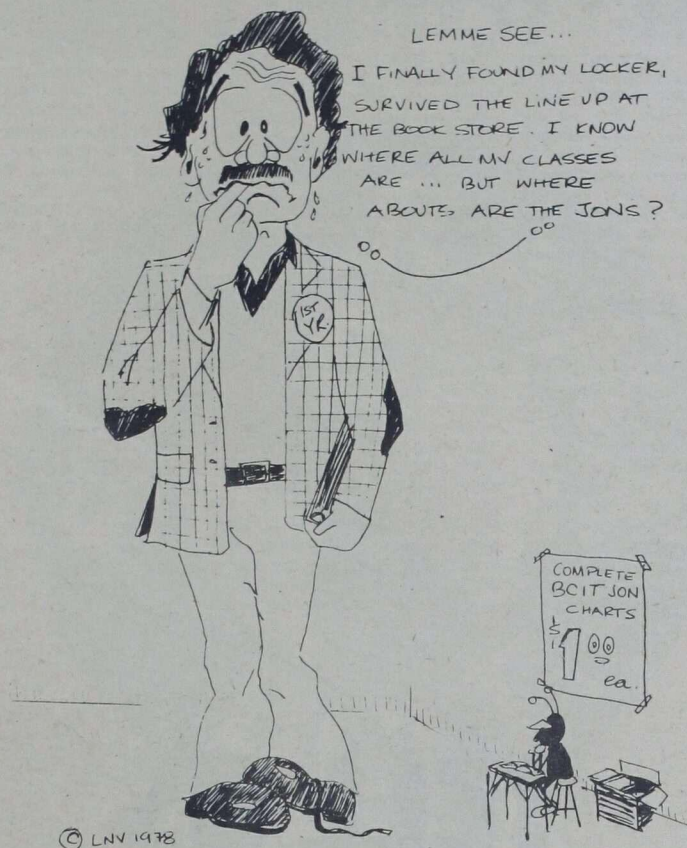 LEMME SEE...
I FINALLY FOUND MY LOCKER,
SURVIVED THE LINE UP AT
THE BOOK STORE. I KNOW
WHERE ALL MY CLASSES
ARE ... BUT WHERE
ABOUTS ARE THE JONS?
1ST
YR.
COMPLETE
BCIT JON
CHARTS
$1.00
ea.
© LNV 1978